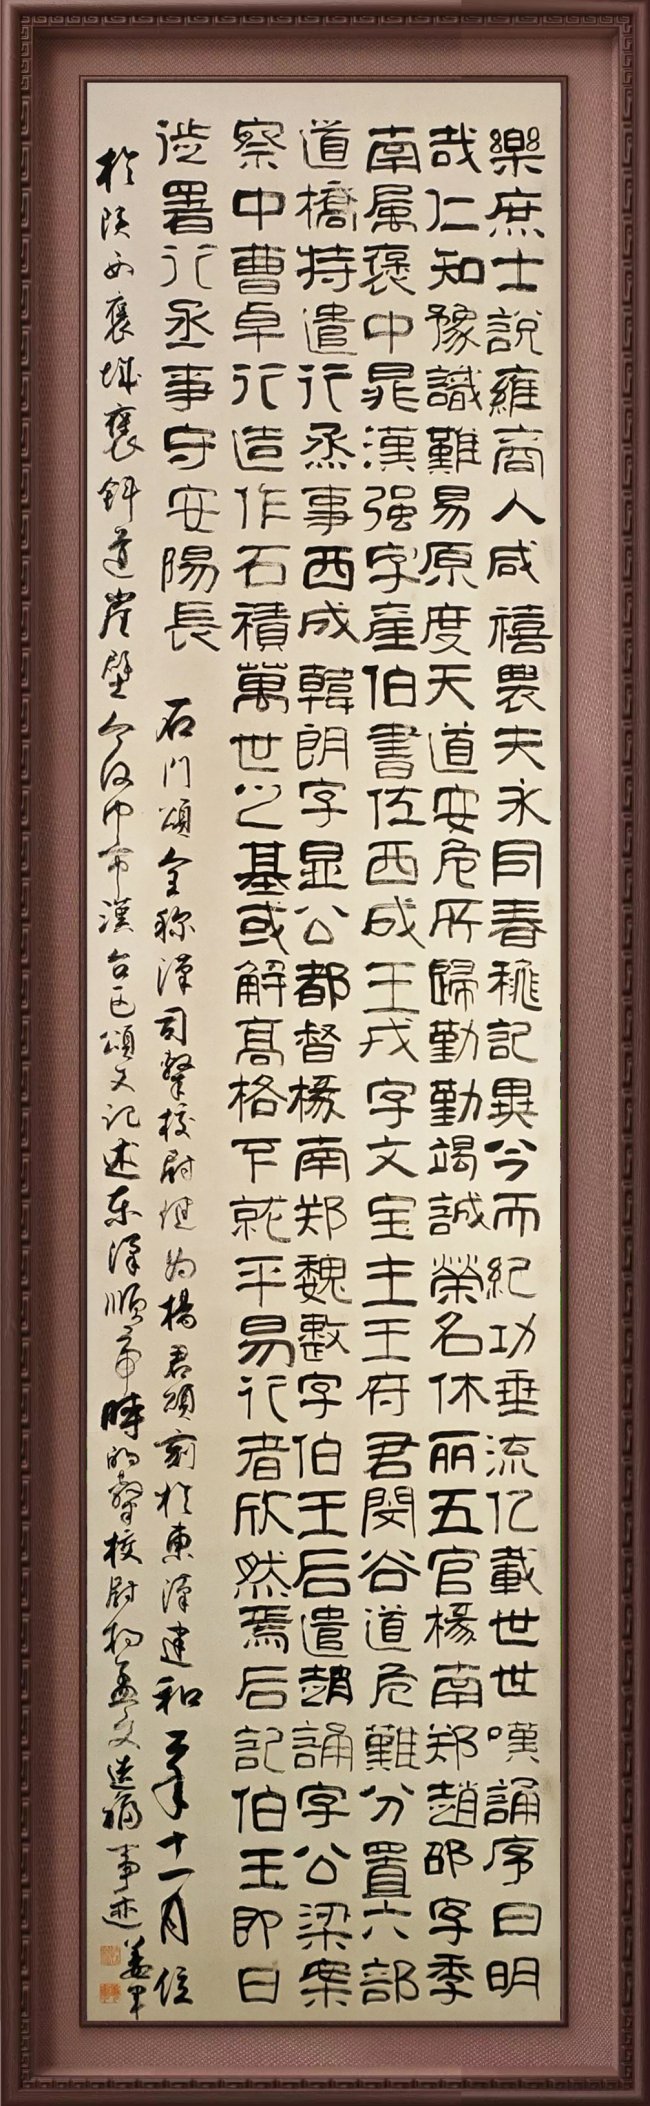 樂庶士說雍商人咸禧農夫永同春穐記異今而紀功垂流亿載世世嘆誦序曰明
哉仁知豫識難易原度天道安危所歸勤勤竭誠榮名休丽五官掾南郑趙邵字季
南属褒中晁漢强字産伯書佐西成王戎字文宝主王府君閔谷道危難分置六部
道橋特遣行丞事西成韓朗字显公都督掾南郑魏整字伯王后遣趙誦字公梁案
察中曹卓行造作石積萬世之基或解高格下就平易行者欣然焉后記伯玉即日
徙署行丞事守安陽長 石門頌全称漢司隸校尉楗为楊君頌刻於東漢建和二年十一月位
於陝西褒城褒斜道崖壁今汉中市漢台区頌文記述东漢順帝時的隸校尉杨孟文造福事迹